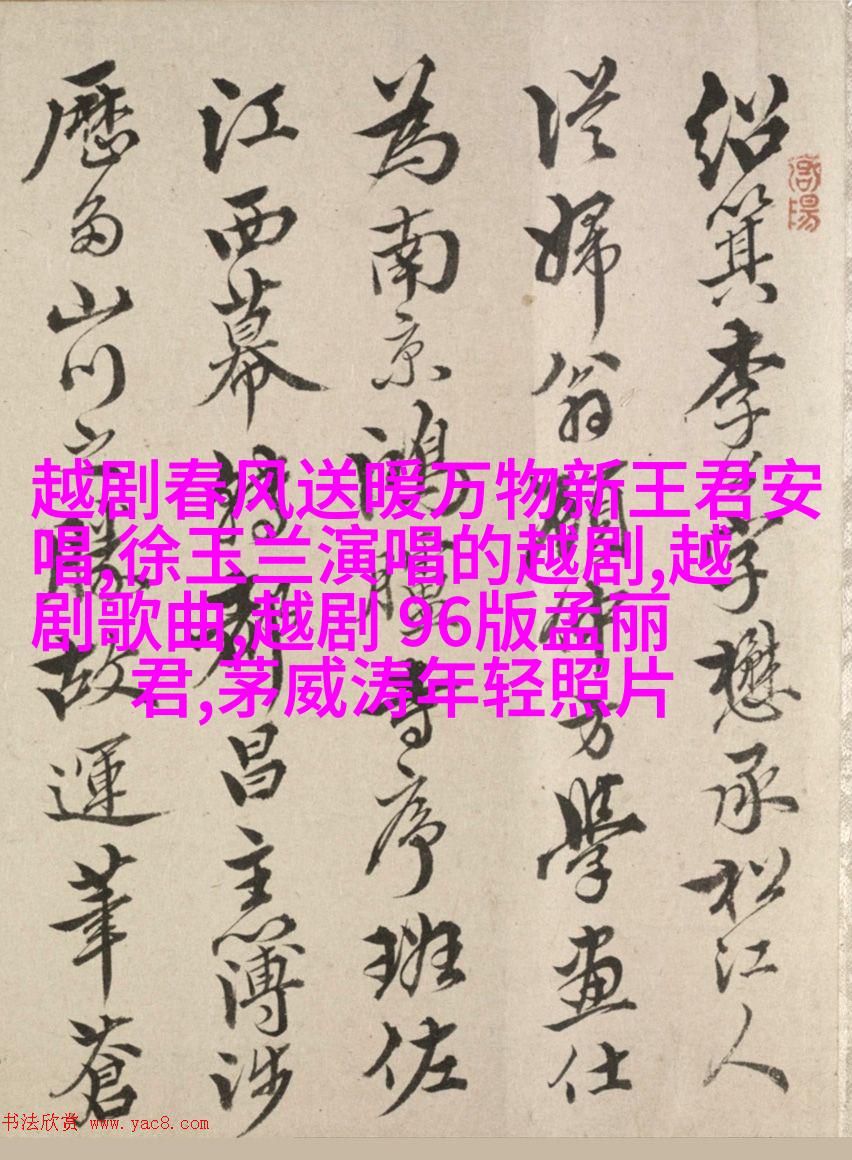 紹箕李字懋承松江人
從婦翁顧仲方學畫仕
為南京鴻臚寺序班佐
江西幕轉都昌主簿涉
歷多山川之勝故運筆蒼
越剧春风送暖万物新王君安
唱,徐玉兰演唱的越剧,越
剧歌曲,越剧 96版孟丽
君,茅威涛年轻照片
书法欣赏 www.yac8.com